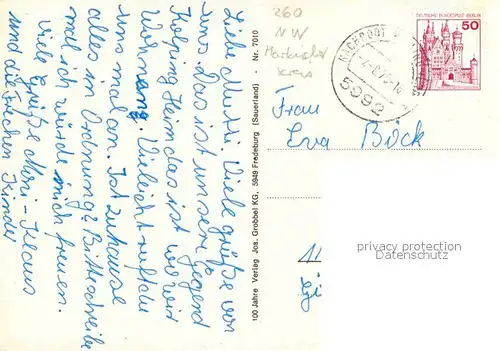 Liebe Mutti. Viele grüße von
uns. Das ist unsere Gegend
Kolping Heim das ist wo wir
Wohnang. Vieleicht rufst du
uns mal an. Ist zuhause
alles in Ordnung? Bitte schreibe
mal ich würde mich freuen.
Viele Grüße Meri - Klaus
und die Frechen Kinder
100 Jahre Verlag Jos. Grobbel KG, 5949 Fredeburg (Sauerland) - Nr. 7010
260
NW
Märkischer
Kreis
NACHRODT
5992
DEUTSCHE BUNDESPOST BERLIN
50
Frau
Eva Böck
11
privacy protection
Datenschutz